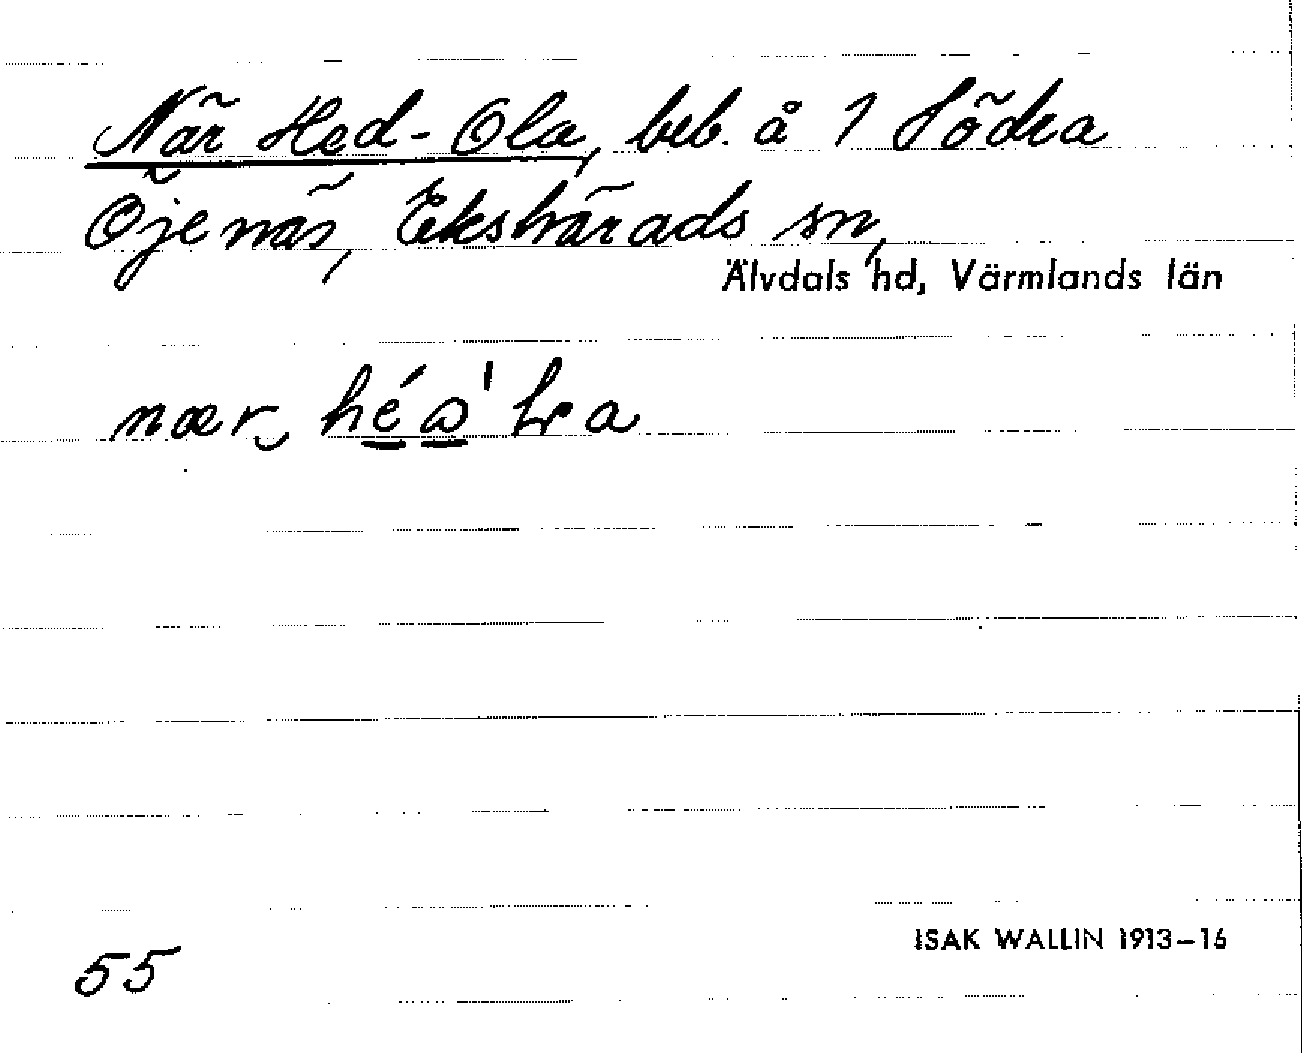 När Hed-Ola, beb. å 1 Södra
Öjenäs, Ekshärads sn,
Älvdals hd, Värmlands län
nær
55
ISAK WALLIN 1913-16